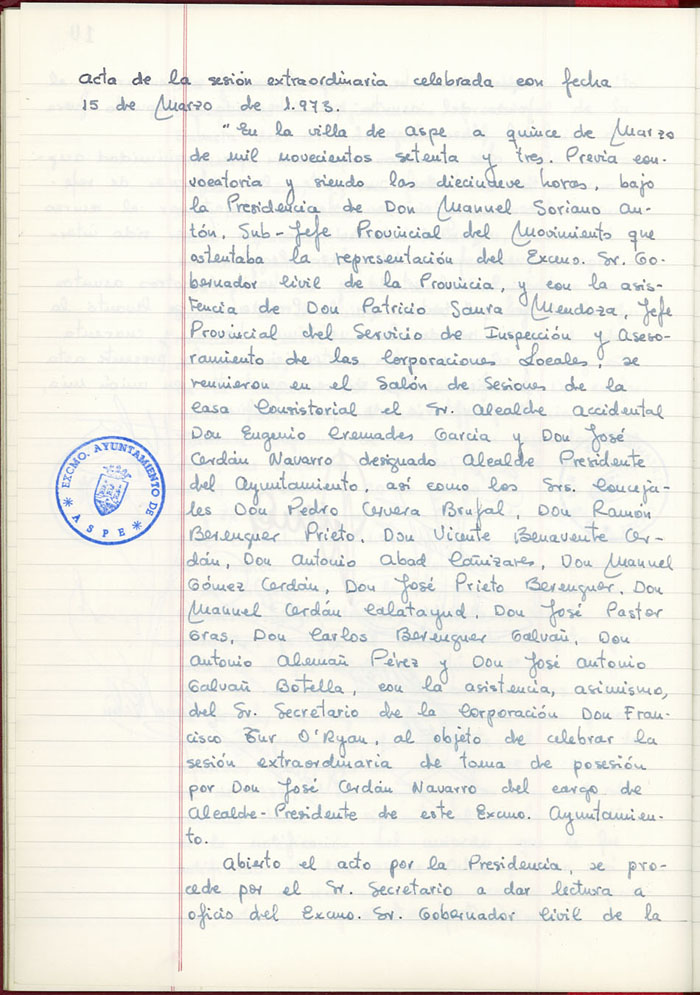 acta de la sesión extraordinaria celebrada con fecha
15 de Marzo de 1.973.
"En la villa de aspe a quince de Marzo
de mil novecientos setenta y tres. Previa con-
vocatoria y siendo las diecinueve horas, bajo
la Presidencia de Don Manuel Soriano an-
tón, Sub-Jefe Provincial del Movimiento que
ostentaba la representación del Excmo. Sr. Go-
bernador civil de la Provincia, y con la asis-
tencia de Don Patricio Saura Mendoza, Jefe
Provincial del Servicio de Inspección y Aseso-
ramiento de las Corporaciones Locales, se
reunieron en el Salón de Sesiones de la
Casa Consistorial el Sr. Alcalde accidental
Don Eugenio Cremades García y Don José
Cerdán Navarro designado Alcalde Presidente
del Ayuntamiento, así como los Srs. Conceja-
les Don Pedro Cervera Brufal, Don Ramón
Berenguer Prieto, Don Vicente Benavente Cer-
dán, Don Antonio Abad Cañizares, Don Manuel
Gómez Cerdán, Don José Prieto Berenguer, Don
Manuel Cerdán Calatayud, Don José Pastor
Gras, Don Carlos Berenguer Galvañ, Don
Antonio Alemañ Pérez y Don José Antonio
Galvañ Botella, con la asistencia, asimismo,
del Sr. Secretario de la Corporación Don Fran-
cisco Tur O'Ryan, al objeto de celebrar la
sesión extraordinaria de toma de posesión
por Don José Cerdán Navarro del cargo de
Alcalde-Presidente de este Excmo. Ayuntamien-
to.
Abierto el acto por la Presidencia, se pro-
cede por el Sr. Secretario a dar lectura a
oficio del Excmo. Sr. Gobernador Civil de la
EXCMO. AYUNTAMIENTO DE
* ASPE *